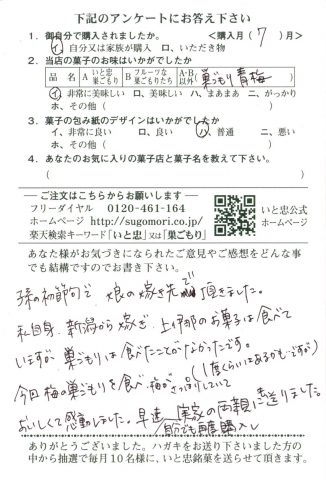 下記のアンケートにお答え下さい
1. 御自分で購入されましたか。 <購入月( 7 )月>
イ. 自分又は家族が購入 ロ. いただき物
2. 当店の菓子のお味はいかがでしたか
品名 A いと忠巣ごもり B フルーツな巣ごもりたち A・B以外 巣ごもり青梅
イ. 非常に美味しい ロ. 美味しい ハ. まあまあ ニ. がっかり
ホ. その他( )
3. 菓子の包み紙のデザインはいかがでしたか
イ. 非常に良い ロ. 良い ハ. 普通 ニ. 悪い
ホ. その他( )
4. あなたのお気に入りの菓子店と菓子名を教えて下さい。
( )
ご注文はこちらからお願いします
フリーダイヤル 0120-461-164
ホームページ http://sugomori.co.jp/
楽天検索キーワード「いと忠」又は「巣ごもり」
いと忠公式
ホームページ
あなた様がお気づきになられたご意見やご感想をどんな事
でも結構ですのでお書き下さい。
孫の初節句で 娘の嫁ぎ先で頂きました。
私自身、新潟から嫁ぎ、上伊那のお菓子は食べて
いますが 巣ごもりは食べたことがなかったです。
(1度くらいはあるかもですが)
今回 梅の巣ごもりを食べ 梅がさっぱりしていて
おいしくて感動しました。早速 実家の両親に送りました。
自分でも購入し
ありがとうございました。ハガキをお送り下さいました方の
中から抽選で毎月10名様に、いと忠銘菓を送らせて頂きます。